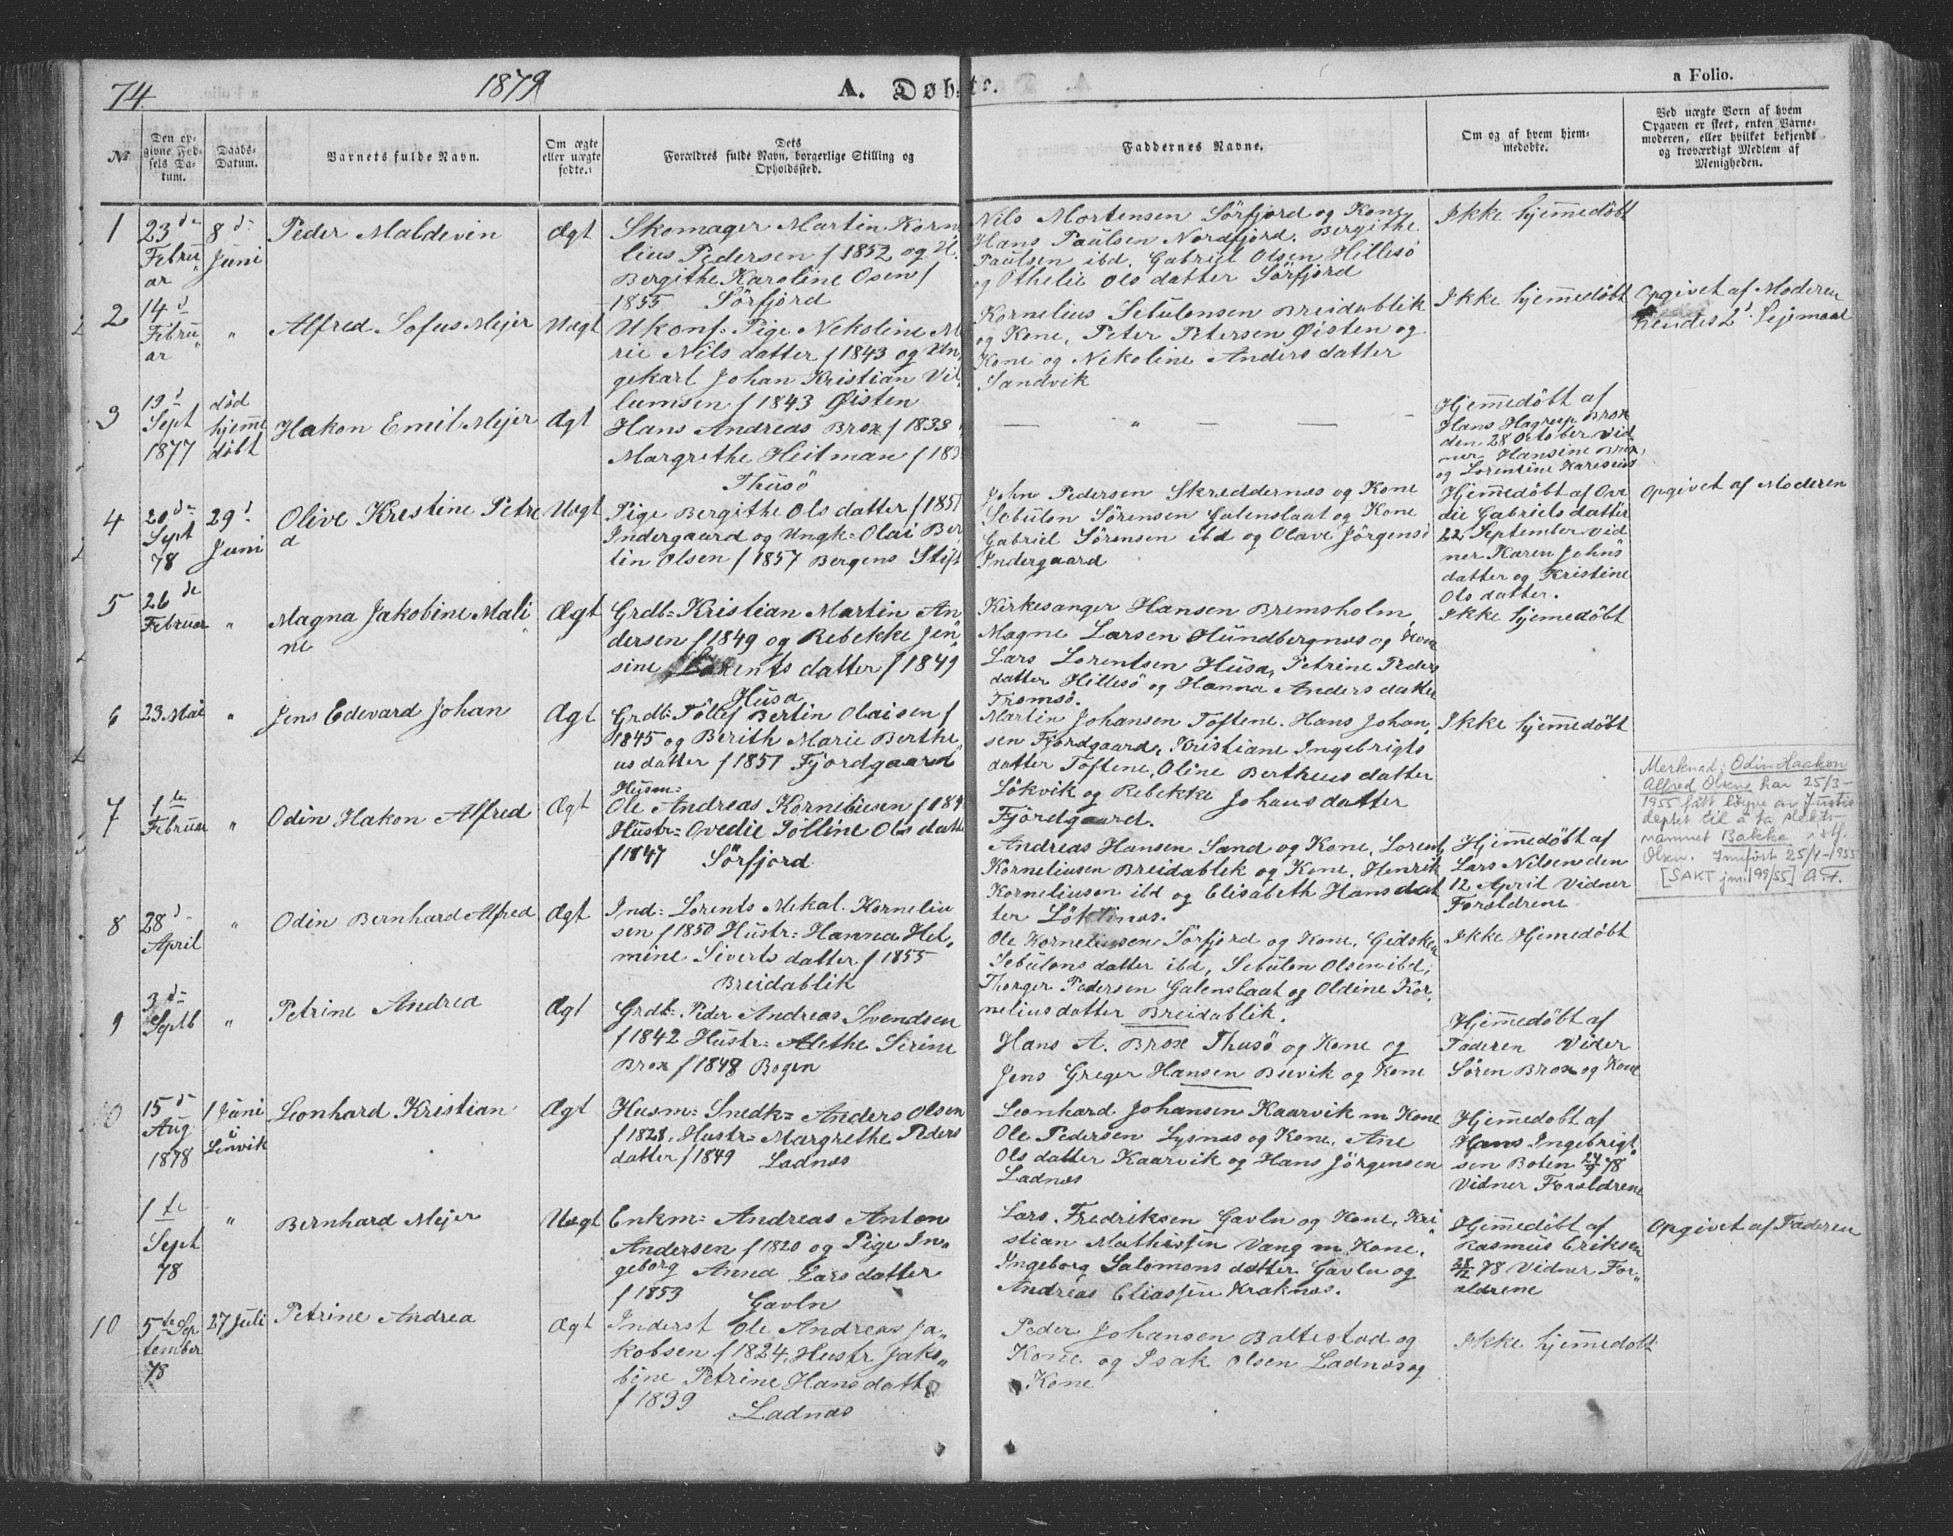 74.
1879
A. Døbte.
a Folio.
No
Den opgivne Fødsels Datum.
Daabs-Datum.
Barnets fulde Navn.
Om ægte eller uægte fødte.
Dets Forældres fulde Navn, borgerlige Stilling og Opholdssted.
Faddernes Navne.
Om og af hvem hjemmedøbte.
Ved uægte Born af hvem Opgaven er skeet, enten Barnemoderen, eller hvilket bekjendt og troværdigt Medlem af Menigheden.
1
23de
Febru
ar
8d
Juni
Peder Maldevin
Ægt
Skomager Martin Korn
lius Pedersen f 1852 og H.
Bergithe Karoline Osen f
1855 Sörfjord
Nils Mortensen Sörfjord og Kone,
Hans Paulsen Nordfjord. Bergithe
Paulsen ibd. Gabriel Olsen Hillesö
og Othelie Ols datter Sörfjord
Ikke hjemmedöbt
2
14d
Febru
ar
"
Alfred Sofus Mejer
Uægt
Ukonf: Pige Nekoline M
rie Nils datter f 1843 og Un,
gekarl Johan Kristian Vil
lumsen f 1843 Øisten
Kornelius Sebulonsen Breidablik
og Kone, Peter Petersen Øisten og
Kone og Nikoline Anders datter
Sandvik
Ikke hjemmedöbt
Opgivet af Moderen
hendes 2d Lejmaal
3
19d
Sept
1877
död
hjemme
döbt
Hakon Emil Mejer
Ægt
Hans Andreas Brox f 1833
Margrethe Heitman f 183
Thusö
— " — —
Hjemmedöbt af
Hans Hagrup Brox
den 28 October Vid
ner Hansine Brox,
og Lorentine Karesius
4
20de
Sept
78
29d
Juni
Olive Kristine Petre
a
Uægt
Pige Bergithe Ols datter f 1851
Indergaard og Ungk: Olai Ber
tin Olsen f 1857 Bergens Stift
John Pedersen Skreddernæs og Kone
Sebulon Sörensen Galenslaat og Kone
Gabriel Sörensen ibd og Olave Jörgensd
Indergaard
Hjemmedöbt af Ove
die Gabriels datter
22 September Vid
ner Karen Johns
datter og Kristine
Ols datter.
Opgivet af Moderen
5
26de
Februar
"
Magna Jakobine Mali
ne
Ægt
Grdb: Kristian Martin An
dersen f 1849 og Rebekke Jen
sine Lorents datter f 1849
Husa
Kirkesanger Hansen Bremsholm,
Magne Larsen Hundbergnæs og Kone
Lars Lorentsen Husa, Petrine Peder
datter Hillesö og Hanna Anders datter
Tromsö.
Ikke hjemmedöbt
6
23 Mai
"
Jens Edevard Johan
Ægt
Grdb: Töllef Bertin Olaisen f
1845 og Berith Marie Berthe
us datter f 1851 Fjordgaard
Martin Johansen Toftene. Hans Johan,
sen Fjordgaard, Kristiane Ingebrigts
datter Toftene, Oline Bertheus datter
Lökvik og Rebekke Johans datter
Fjördgaard.
Ikke hjemmedöbt
7
1te
Februar
"
Odin Hakon Alfred
Ægt
Husm:
Ole Andreas Korneliusen f 184
Hustr: Ovedie Pölline Ols datt
f 1847 Sörfjord
Andreas Hansen Sand og Kone, Lorent
Korneliusen Breidablik og Kone, Henrik
Korneliusen ibd og Elisabeth Hans dat
ter Löktinæs.
Hjemmedöbt af
Lars Nilsen den
12 April Vidner
Forældrene
Merknad: Odin Haakon
Alfred Olsen har 25/3-
1955 fått løyve av Justis
deptet til å ta slekts-
namnet Bakke istf.
Olsen. Innført 25/4-1955
[SAKT jnr.199/55] A.F.
8
28d
April
"
Odin Bernhard Alfred
Ægt
Ind: Lorents Mekal. Korneliu
sen f 1850 Hustr: Hanna Hel,
mine Siverts datter f 1855
Breidablik
Ole Korneliusen Sörfjord og Kone, Gidsken
Sebulons datter ibd, Sebulon Olsen ibd,
Thorger Pedersen Galenslaat og Oldine Kor,
nelius datter Breidablik.
Ikke Hjemedöbt
9
3de
Septb
"
Petrine Andrea
Ægt
Grdb: Peder Andreas Svendsen
f 1842 Hustr: Alethe Serine
Brox f 1848 Bogen
Hans A. Brox Thusö og Kone og
Jens Greger Hansen Buvik og Kone
Hjemmedöbt af
Faderen Vider
Sören Brox og Kone
10
15de
Aug
1878
1 Juni
i
Lenvik
Leonhard Kristian
Ægt
Husm: Snedk: Anders Olsen
f 1828, Hustr: Margrethe Peders
datter f 1849 Ladnæs
Leonhard Johansen Kaarvik m Kone
Ole Pedersen Lysnæs og Kone, Ane
Ols datter Kaarvik og Hans Jörgensen
Ladnæs
Hjemmedöbt af
Hans Ingebrigt
sen Boten 24/9 78
Vidner Forældrene
1te
Sept
78
"
Bernhard Mejer
Uægt
Enkm: Andreas Anton
Andersen f 1820 og Pige In,
geborg Anna Lars datter
f 1853 Gavln
Lars Fredriksen Gavln og Kone, Kri
stian Mathissen Vang m Kone.
Ingeborg Salomons datter Gavln og
Andreas Eliassen Kraknæs.
Hjemmedöbt af
Rasmus Eriksen
78 Vidner For,
ældrene
Opgivet af Faderen
10
5te Sep
tember
78
27 Juli
Petrine Andrea
Ægt
Inderst Ole Andreas Ja,
kobsen f 1824, Hustr. Jako,
bine Petrine Hans datt
f 1839 Ladnæs
Peder Johansen Baltestad og
Kone og Isak Olsen Ladnæs og
Kone
Ikke hjemmedöbt